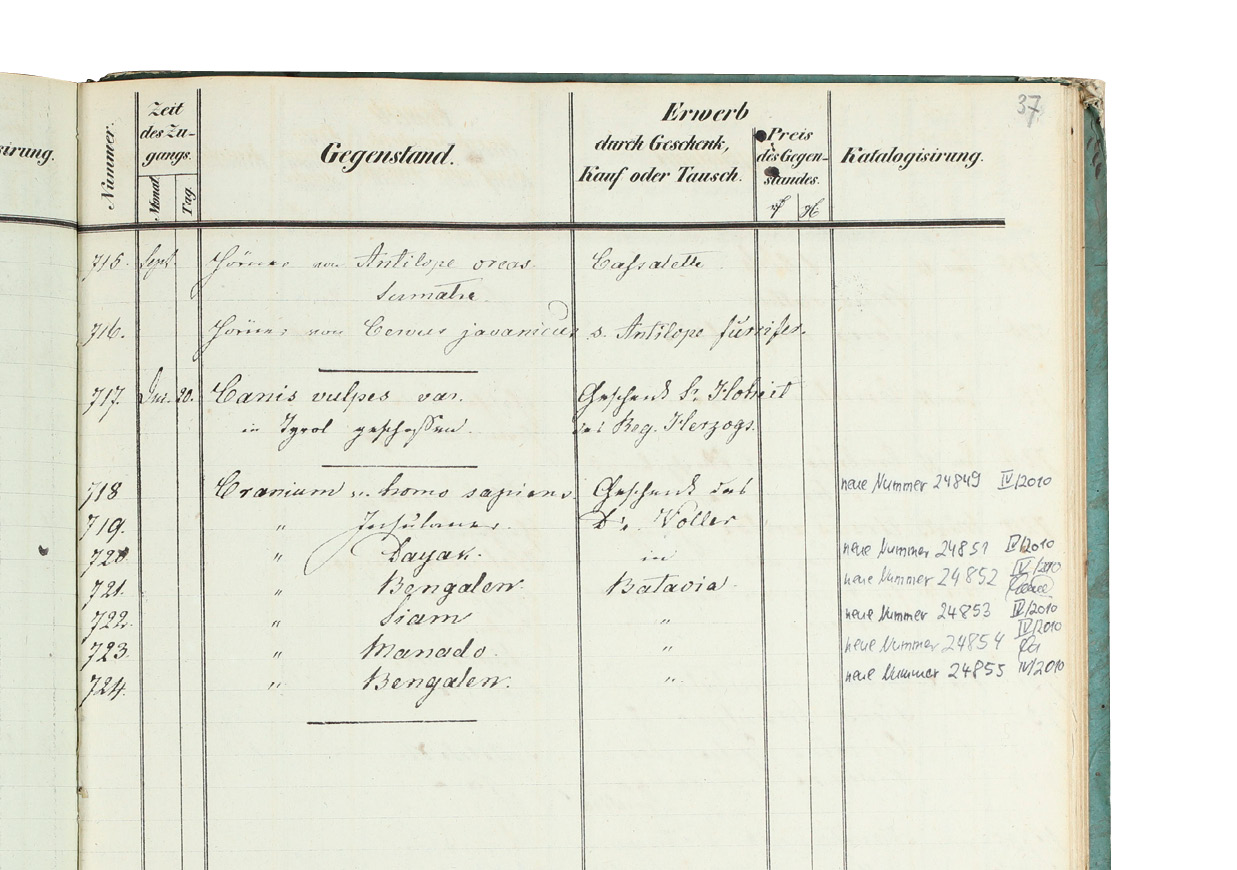 37
sirung.
Nummer.
Zeit
des Zu-
gangs.
Monat
Tag.
Gegenstand.
Erwerb
durch Geschenk,
Kauf oder Tausch.
Preis
des Gegen-
standes.
Katalogisirung.
715. Sept. Hörner von Antilope oreas. Cassalette
Sumatra.
716. Hörner von Cervus javanicus s. Antilope furcifer.
717. 20. Canis vulpes var. Geschenk Sr. Hoheit
in Tyrol geschossen. des Reg. Herzogs.
718 Cranium v. homo sapiens. Geschenk des neue Nummer 24849 IV/2010
719. " Insulaner. Dr. Woller
720 " Dayak. in neue Nummer 24851 IV/2010
721. " Bengalen. Batavia. neue Nummer 24852 IV/2010
722. " Siam " neue Nummer 24853 IV/2010
723. " Manado. " neue Nummer 24854 IV/2010
724. " Bengalen. " neue Nummer 24855 IV/2010